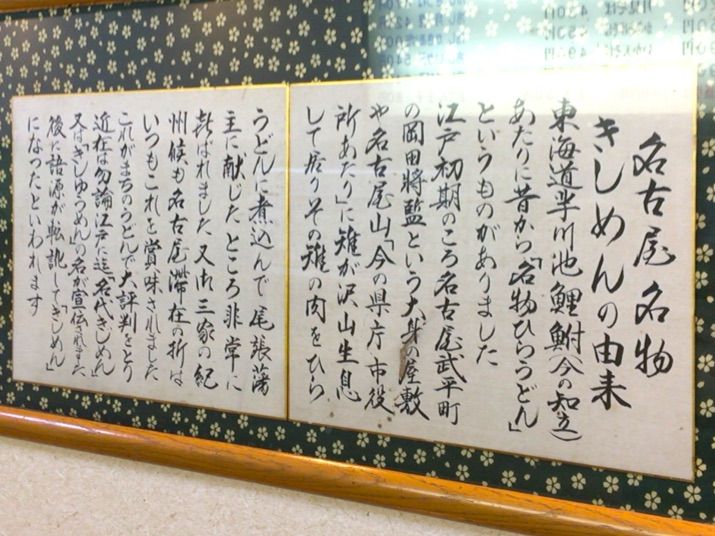 名古屋名物
きしめんの由来
東海道芋川池鯉鮒(今の知立)
あたりに昔から「名物ひらうどん」
というものがありました
江戸初期のころ名古屋武平町
の岡田將監という大身の屋敷
や名古屋山「今の県庁・市役
所あたり」に雉が沢山生息
して居りその雉の肉をひら
うどんに煮込んで尾張藩
主に献じたところ非常に
喜ばれました又御三家の紀
州候も名古屋滞在の折は
いつもこれを賞味されました
これがまちのうどんで大評判をとり
近在は勿論江戸に迄名代きしめん」
又はきしゆうめん」の名が宣伝されました
後に語源が転訛して「きしめん」
になったといわれます